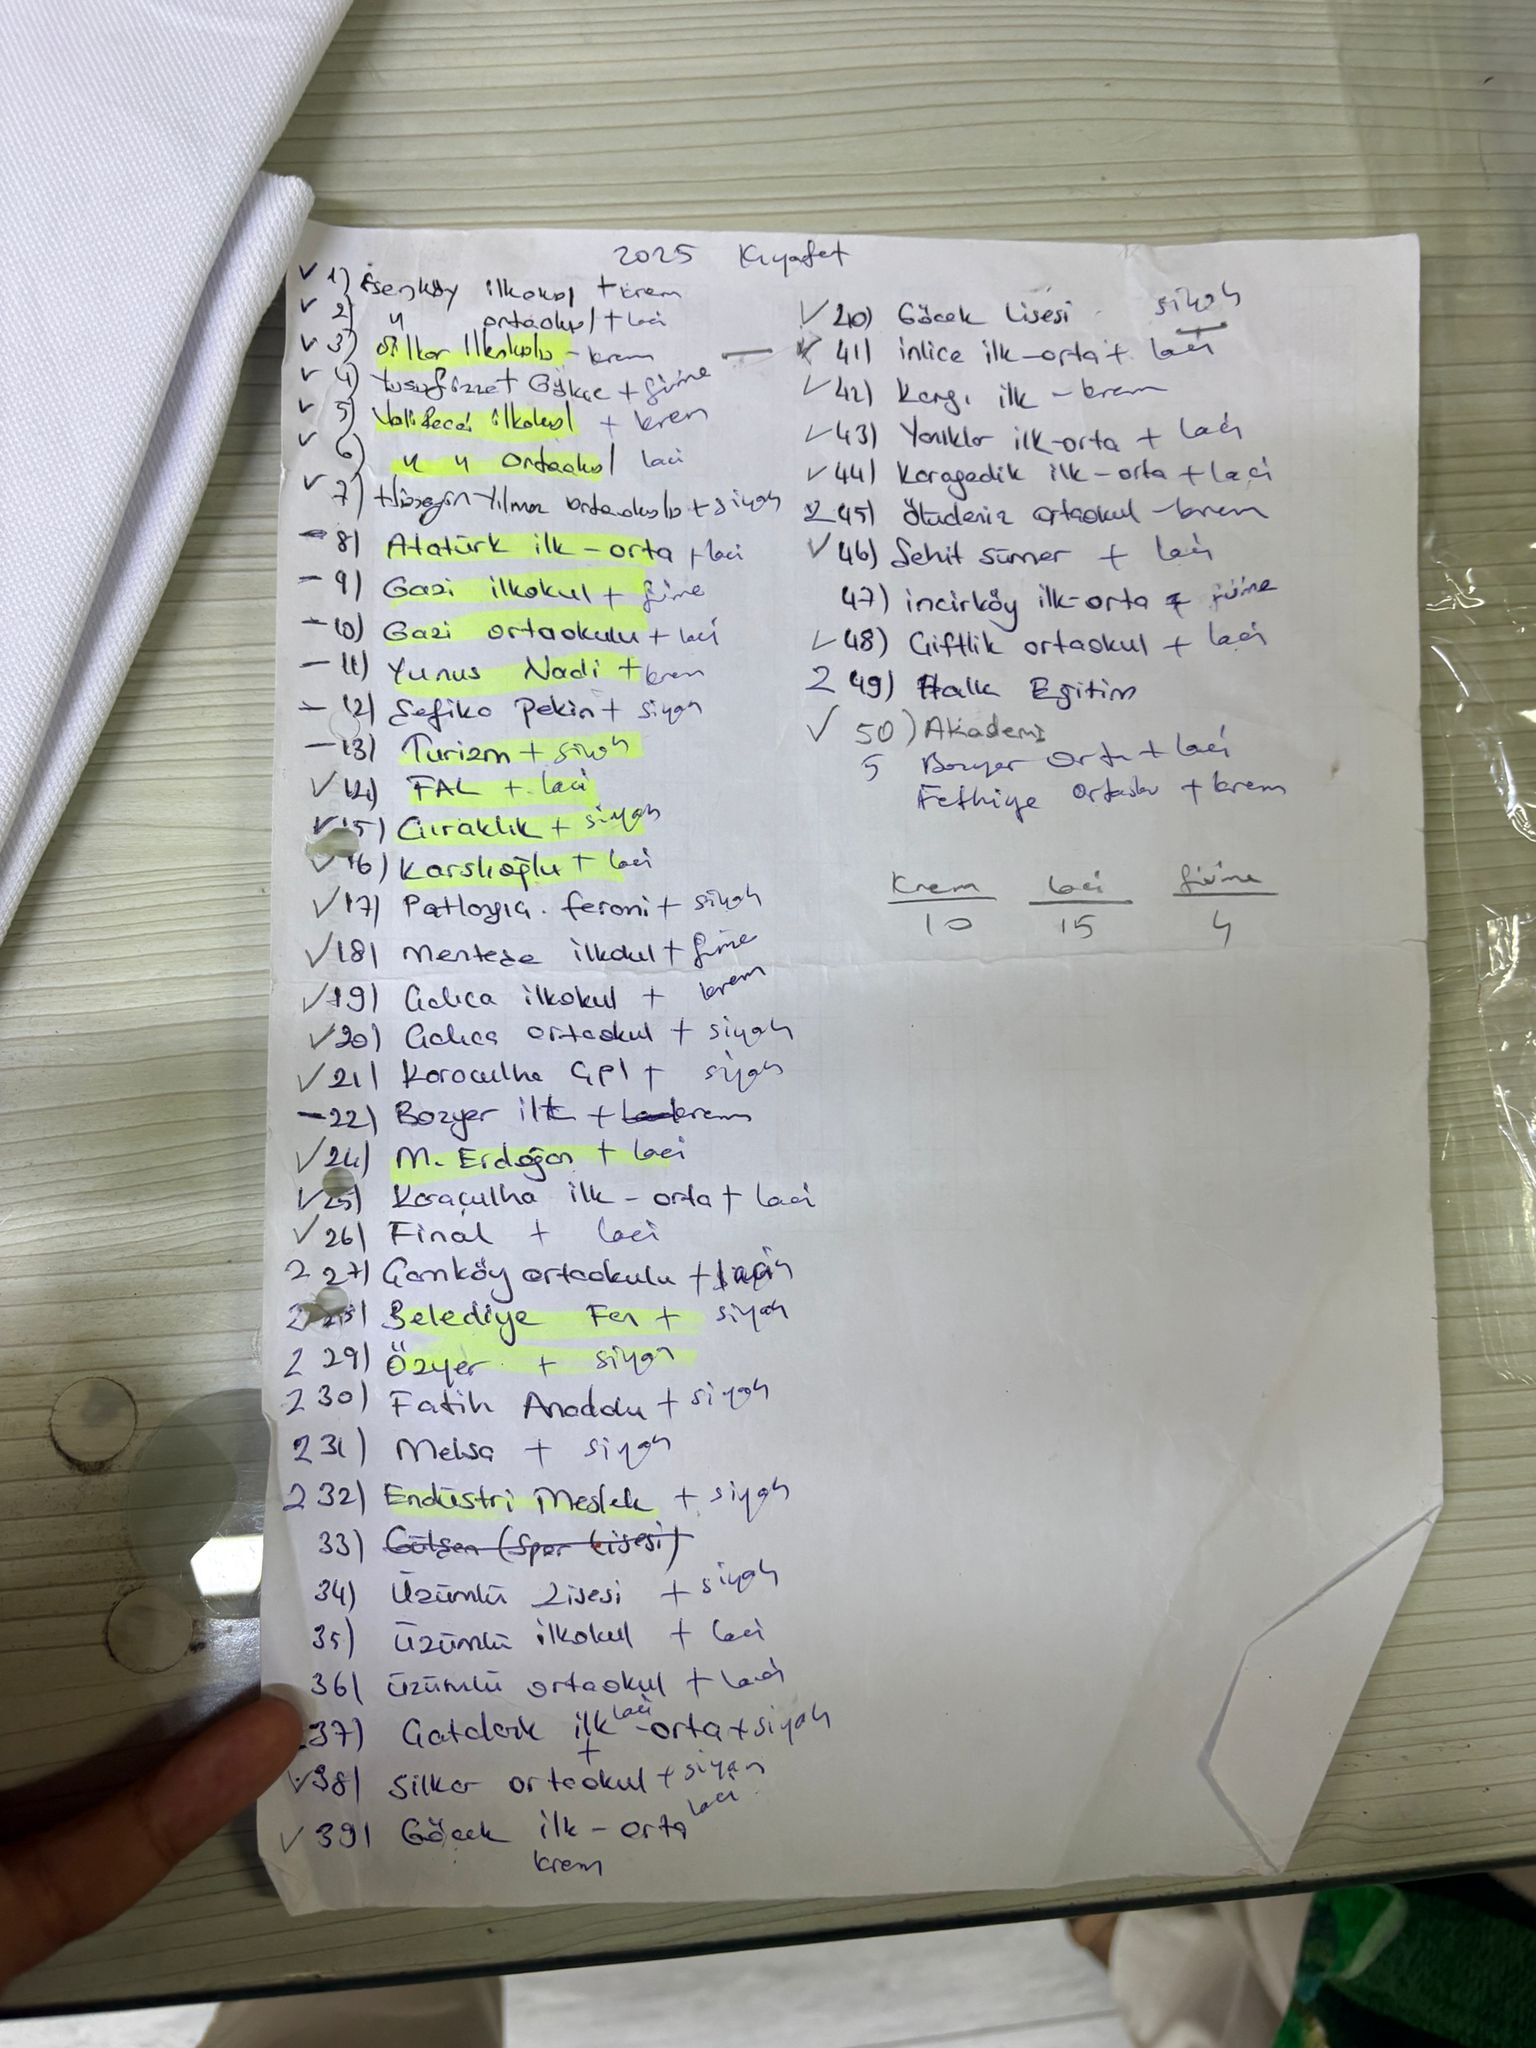 2025 Kıyafet
✓ 1) Esenköy ilkokul + krem
✓ 2) " ortaokul + laci
✓ 3) Silkar ilkokulu - krem
✓ 4) Yusufizzet Gökçe + füme
✓ 5) Vali Recai ilkokul + krem
✓ 6) " " Ortaokul laci
✓ 7) Hüseyin Yılmaz ortaokulu + siyah
- 8) Atatürk ilk - orta + laci
- 9) Gazi ilkokul + füme
- 10) Gazi ortaokulu + laci
- 11) Yunus Nadi + krem
- 12) Şefika Pekin + siyah
- 13) Turizm + siyah
✓ 14) FAL + laci
✓ 15) Çıraklık + siyah
✓ 16) Karslıoğlu + laci
✓ 17) feroni + siyah
✓ 18) Menteşe ilkokul + füme
✓ 19) Çalıca ilkokul + krem
✓ 20) Çalıca ortaokul + siyah
✓ 21) Karaçulha ÇPL + siyah
- 22) Bozyer ilk + krem
✓ 24) M. Erdoğan + laci
✓ 25) Karaçulha ilk - orta + laci
✓ 26) Final + laci
2 27) Çamköy ortaokulu +
2 28) Belediye Fen + siyah
2 29) Özyer + siyah
2 30) Fatih Anadolu + siyah
2 31) Melsa + siyah
2 32) Endüstri Meslek + siyah
33) Gülşen (Spor Lisesi)
34) Üzümlü Lisesi + siyah
35) Üzümlü ilkokul + laci
36) Üzümlü ortaokul + laci
37) Çatdere ilk laci - orta + siyah
+
✓ 38) Silkar ortaokul + siyah
✓ 39) Göcek ilk - orta laci
krem
✓ 40) Göcek Lisesi siyah
✓ 41) inlice ilk-orta + laci
✓ 42) Kargı ilk - krem
✓ 43) Yanıklar ilk-orta + laci
✓ 44) Karagedik ilk - orta + laci
2 45) Ölüdeniz ortaokul - krem
✓ 46) Şehit Sümer + laci
47) incirköy ilk-orta + füme
✓ 48) Çiftlik ortaokul + laci
2 49) Halk Eğitim
✓ 50) Akademi
5 Bozyer Orta + laci
Fethiye Ortaoku + krem
Krem laci füme
10 15 4